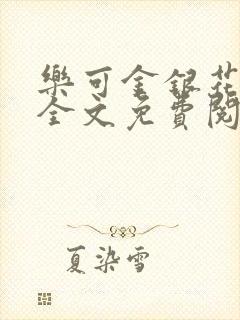 樂可金銀花
全文免費閱
夏染雪